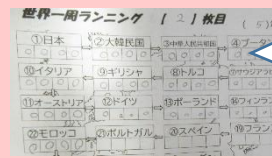 世界一周ランニング [ 2 ] 枚目 ( 5
①日本 ②大韓民国 ③中華人民共和国 ④ブータ
⑩イタリア ⑨ギリシャ ⑧トルコ ⑦サウジアラ
⑪オーストリア ⑫ドイツ ⑬ポーランド ⑭フィンラ
㉒モロッコ ㉑ポルトガル ⑳スペイン ⑲フラン